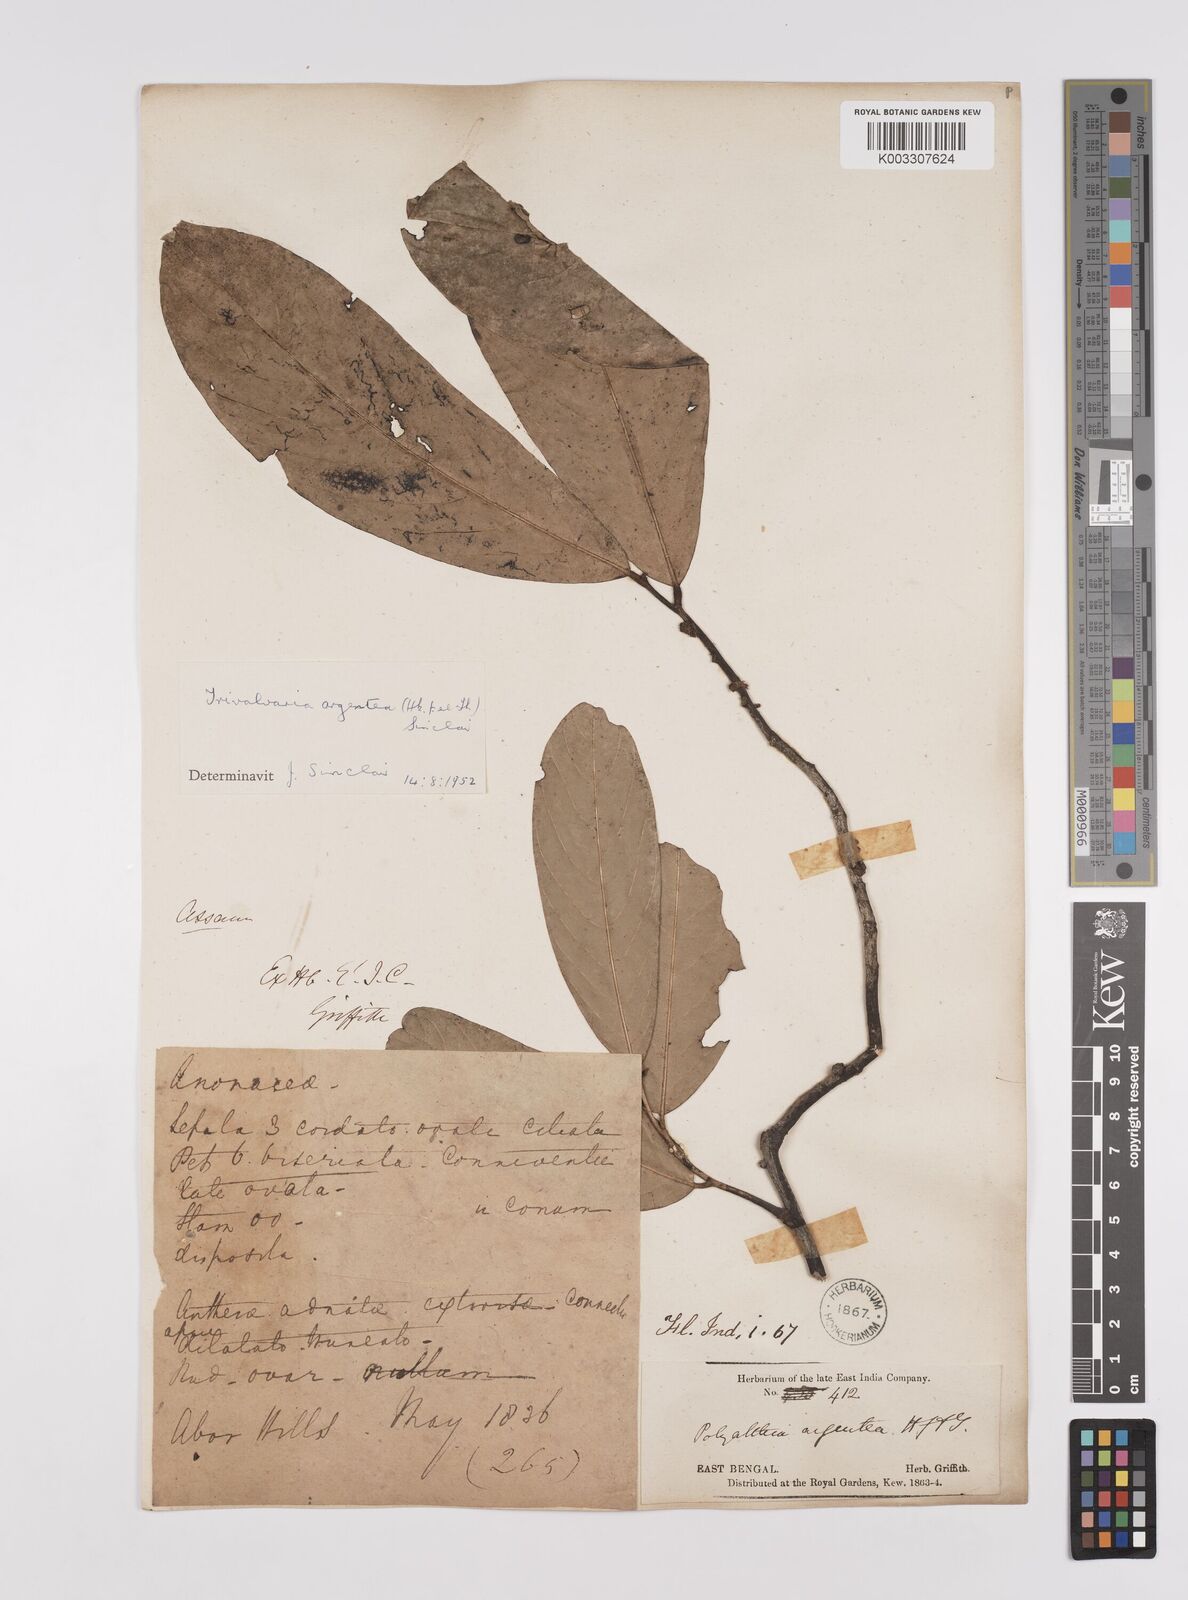 P
ROYAL BOTANIC GARDENS KEW
K003307624
Trivalvaria argentea (Hk. f. et Th.)
Sinclair
Determinavit J. Sinclair 14:8:1952
Assam
Ex Hb. E. I. C-
Griffith
Anonaceæ-
Sepala 3 cordato ovata ciliata
Pet 6. biseriata. Conniventia
late ovata-
Stam oo-
in conum
disposita.
Antheræ adnatæ extrorsæ-
apice
dilatato truncato-
Rud- ovar- nullum
Abor Hills. May 1836
(265)
Fl. Ind. i. 67
HERBARIUM
1867.
HOOKERIANUM
Herbarium of the late East India Company.
No. 412
Polyalthia argentea. H.f.&T.
EAST BENGAL. Herb. Griffith.
Distributed at the Royal Gardens, Kew. 1863-4.
inches
centimeters
Density
Don Williams
M000966
Royal Botanic Gardens
Kew
0 1 2 3 4 5 6 7 8 9 10
copyright reserved